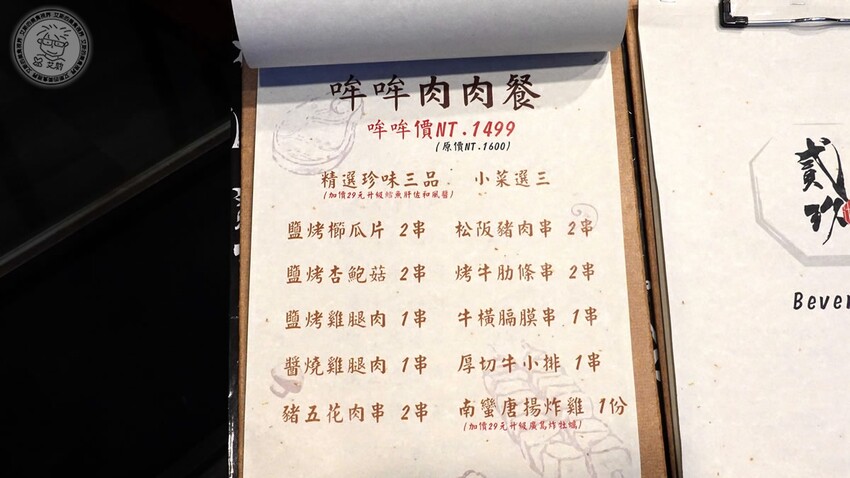 哞哞肉肉餐
哞哞價NT.1499
(原價NT.1600)
精選珍味三品 小菜選三
(加價29元升級鱈魚肝佐和風醬)
鹽烤櫛瓜片 2串 松阪豬肉串 2串
鹽烤杏鮑菇 2串 烤牛肋條串 2串
鹽烤雞腿肉 1串 牛橫膈膜串 1串
醬燒雞腿肉 1串 厚切牛小排 1串
豬五花肉串 2串 南蠻唐揚炸雞 1份
(加價29元升級廣島炸牡蠣)
貳玖
Bever